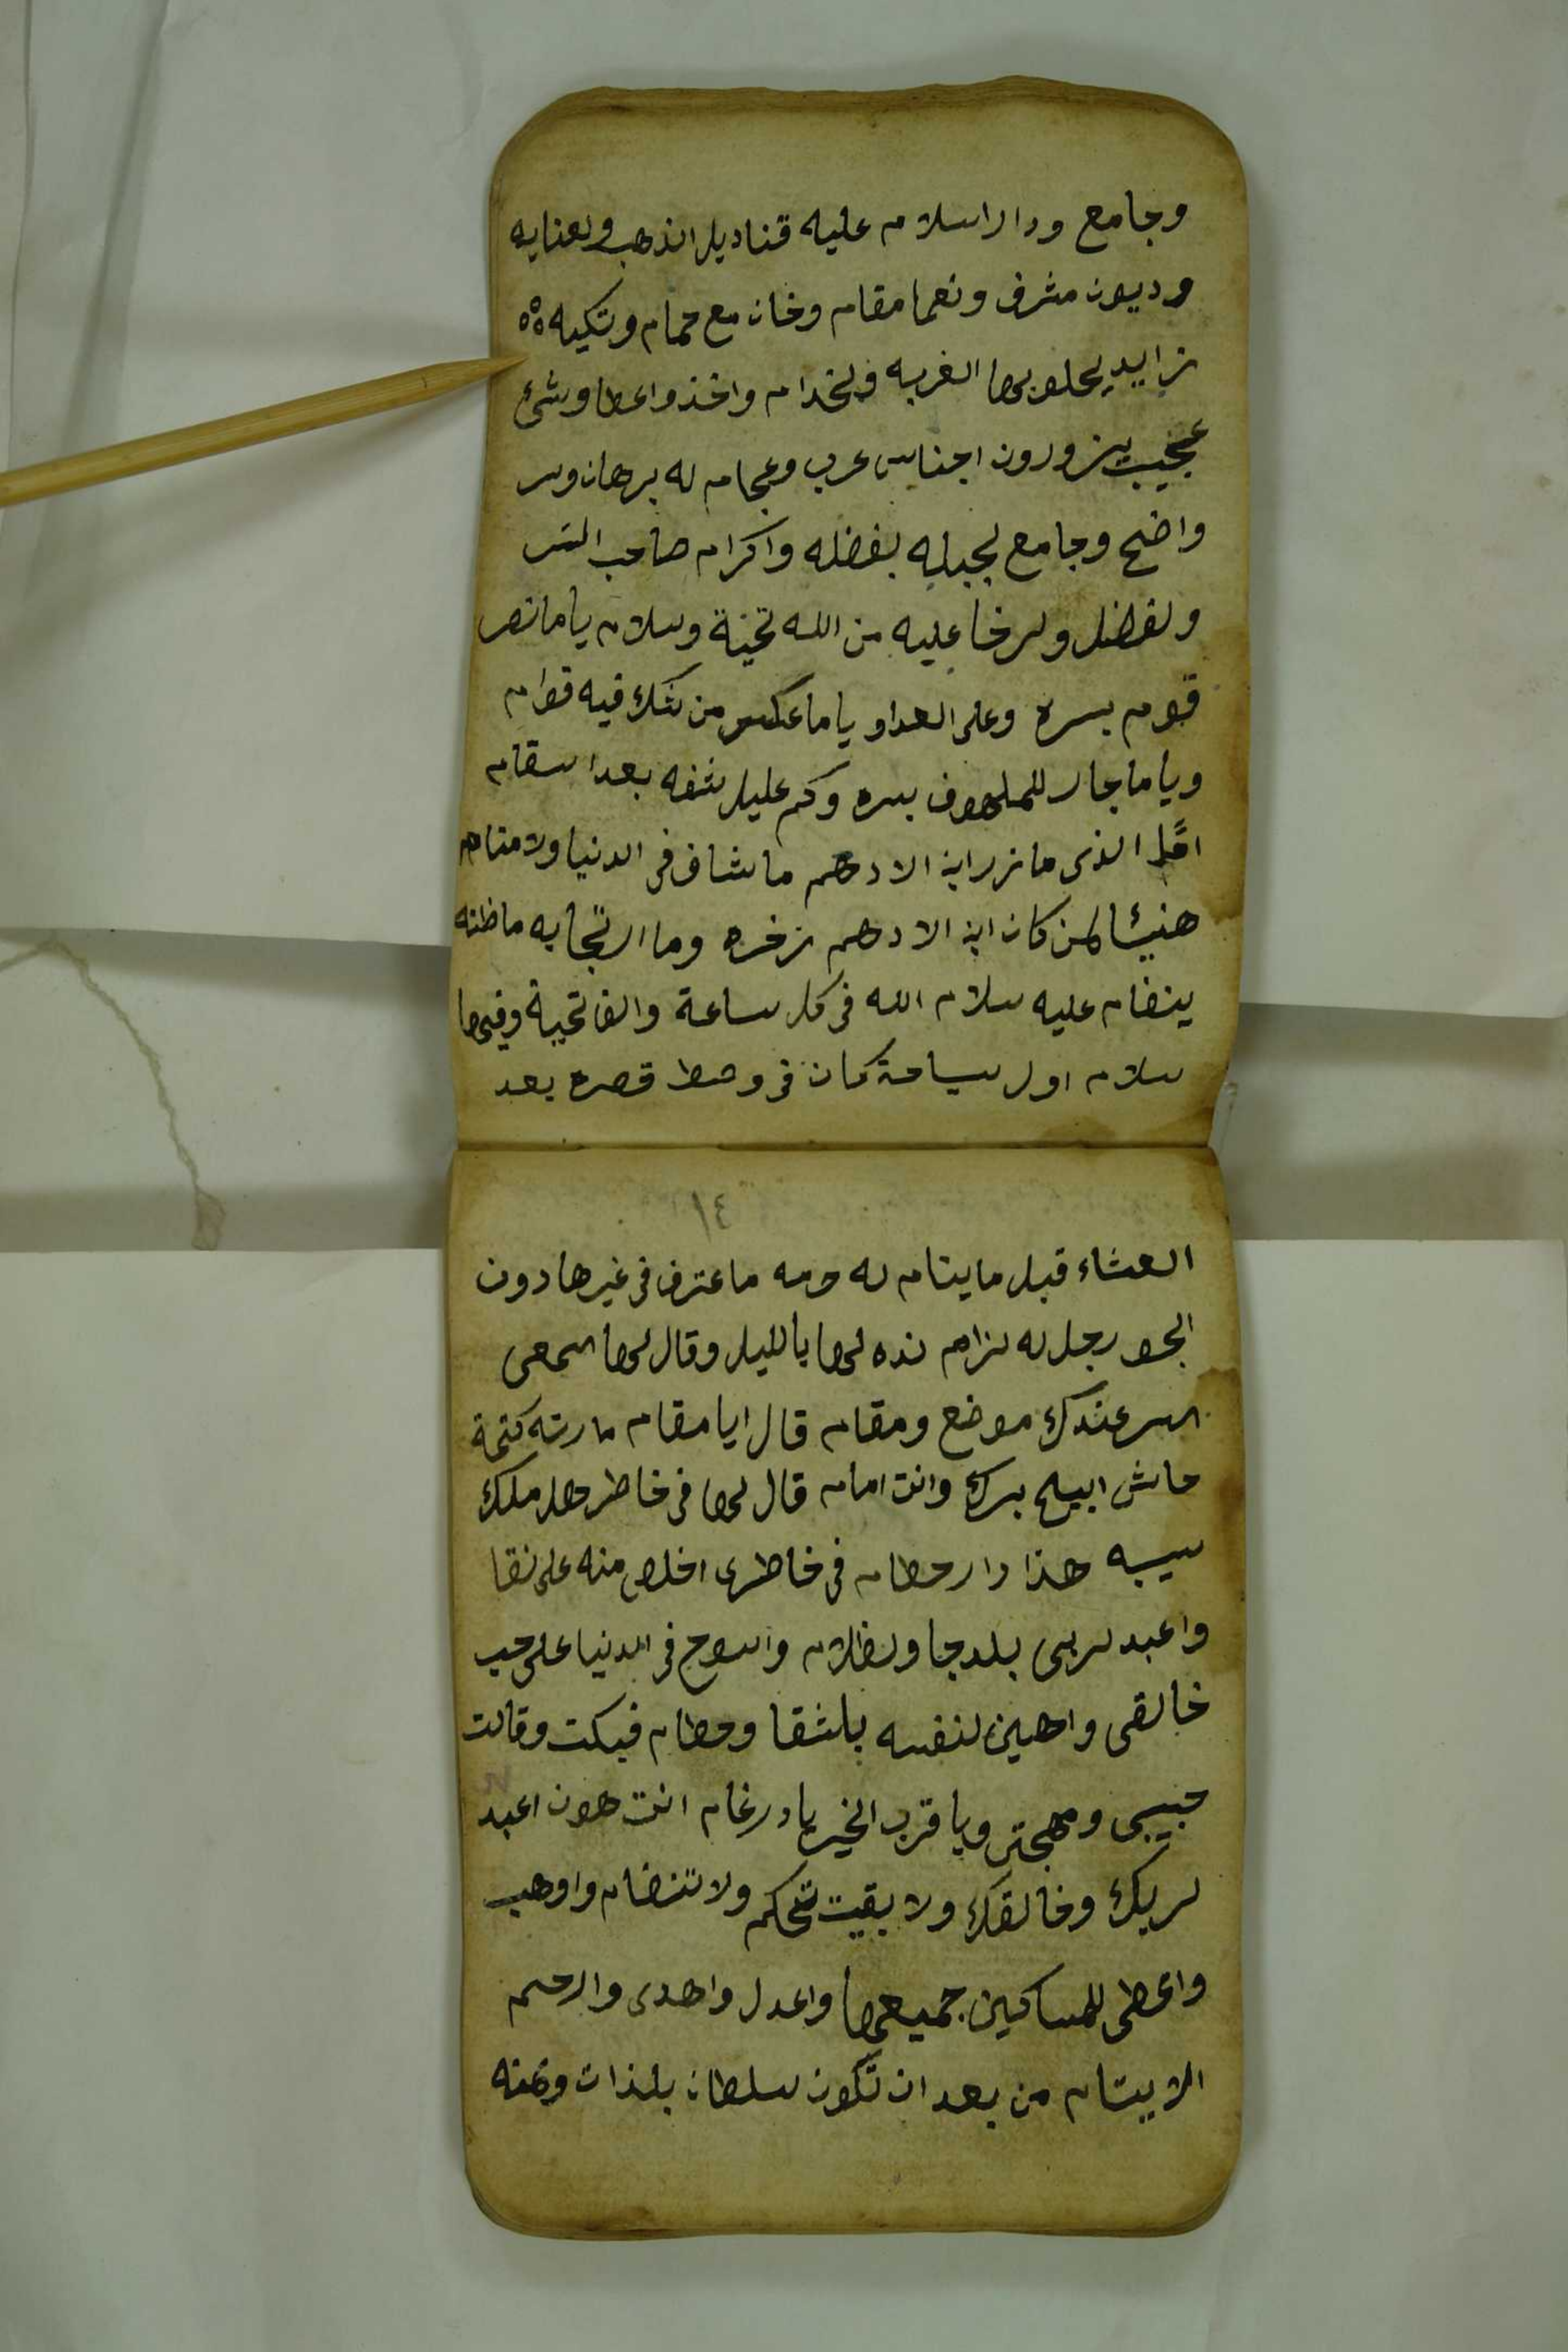 وجامع ودار اسلام عليه قناديل الذهب ولعنايه
وديون مشرف ونعما مقام وخان مع حمام وتكيه
زايد يحلو بها الغربه ولخدام واخذ واعطا وشئ
عجيب يزورون اجناس عرب وعجام له برهان وسر
واضح وجامع لجبله بفضله واكرام صاحب السر
ولفضل ولرخا عليه من الله تحية وسلام ياما نصر
قوم بسره وعلى العدا ياما عكس من شك فيه قوام
وياما جار للملهوف بسره وكم عليل شفه بعد اسقام
امّا الذى ما زر ابن الادهم ماشاف فى الدنيا ولا منام
هنيئا لمن كان ابن الادهم زخره وما التجا به ماظنه
ينضام عليه سلام الله فى كل ساعة والف تحية وفيها
سلام اول سياحة كان فى وصط قصره بعد
١٤
العشاء قبل ماينام له حرمه ماعترف فى غيرها دون
الجور رجل له لزام نده لها ياالليل وقال لها اسمعى
السر عندك موضع ومقام قال ايا مقام كتمة
حاش ابيح بسرك وانت امام قال لها فى خاطر ملك
سيبه هذا دار حطام فى خاطرى اخلص منه على نقا
واعبد لربى بلدجا ولظلام واسوح فى الدنيا على حب
خالقى واهين لنفسه بلشقا وحطام فبكت وقالت
حبيبى ومهجتى ويا قرب الخير يا درغام انت هون اعبد
لربك وخالقك ولا بقيت تحكم ولا تنضام واوهب
واعطى للمساكين جميعها واعدل واهدى وارحم
الايتام من بعد ان تكون سلطان بلذات ونعمه